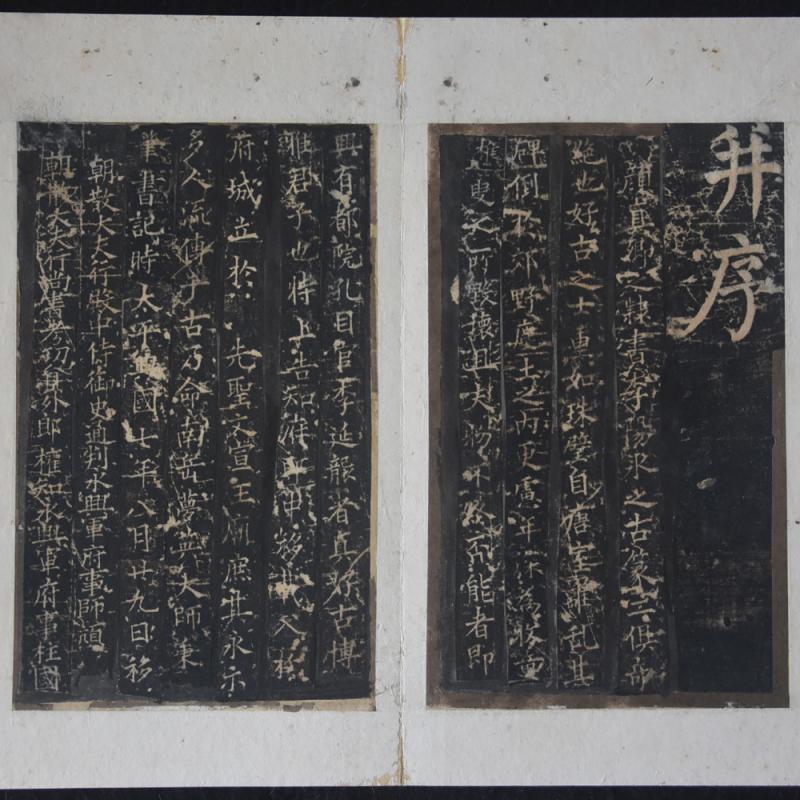 并序
顏真卿之隸書李陽冰之古篆二俱奇
絕也好古之士重如珠璧自唐室離亂其
碑倒於郊野塵土之內更慮年深為牧童
樵叟之所毀壞且夫物不終否能者即
興有都院孔目官李延襲者真好古博
雅君子也特上告知府郎中移載入於
府城立於 先聖文宣王廟庶其永示
多人流傳千古乃命南岳夢英大師秉
筆書記時太平興國七年八月廿九日移
朝散大夫行殿中侍御史通判永興軍府事師頏
朝散大夫行尚書考功員外郎權知永興軍府事柱國